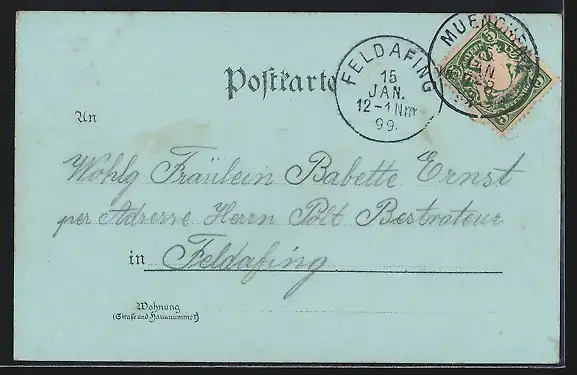 MUENCHEN
FELDAFING
15
JAN.
12-1 Nm
99.
Postkarte
5
An
Wohlg Fräulein Babette Ernst
per Adresse Herrn Polt Restrateur
in Feldafing
Wohnung
(Straße und Hausnummer)